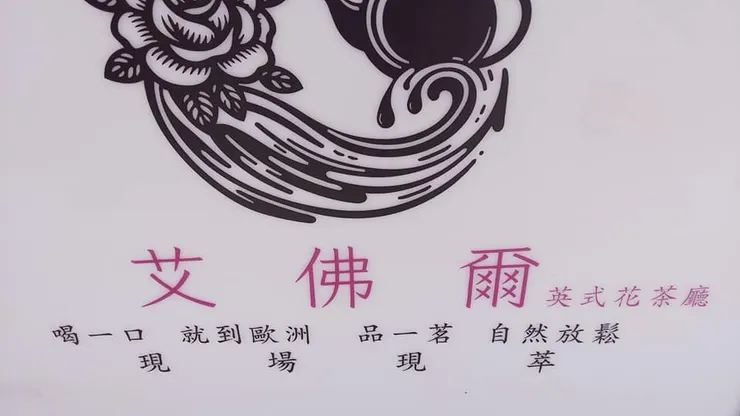 艾佛爾 英式花茶廳
喝一口 就到歐洲 品一茗 自然放鬆
現場現萃